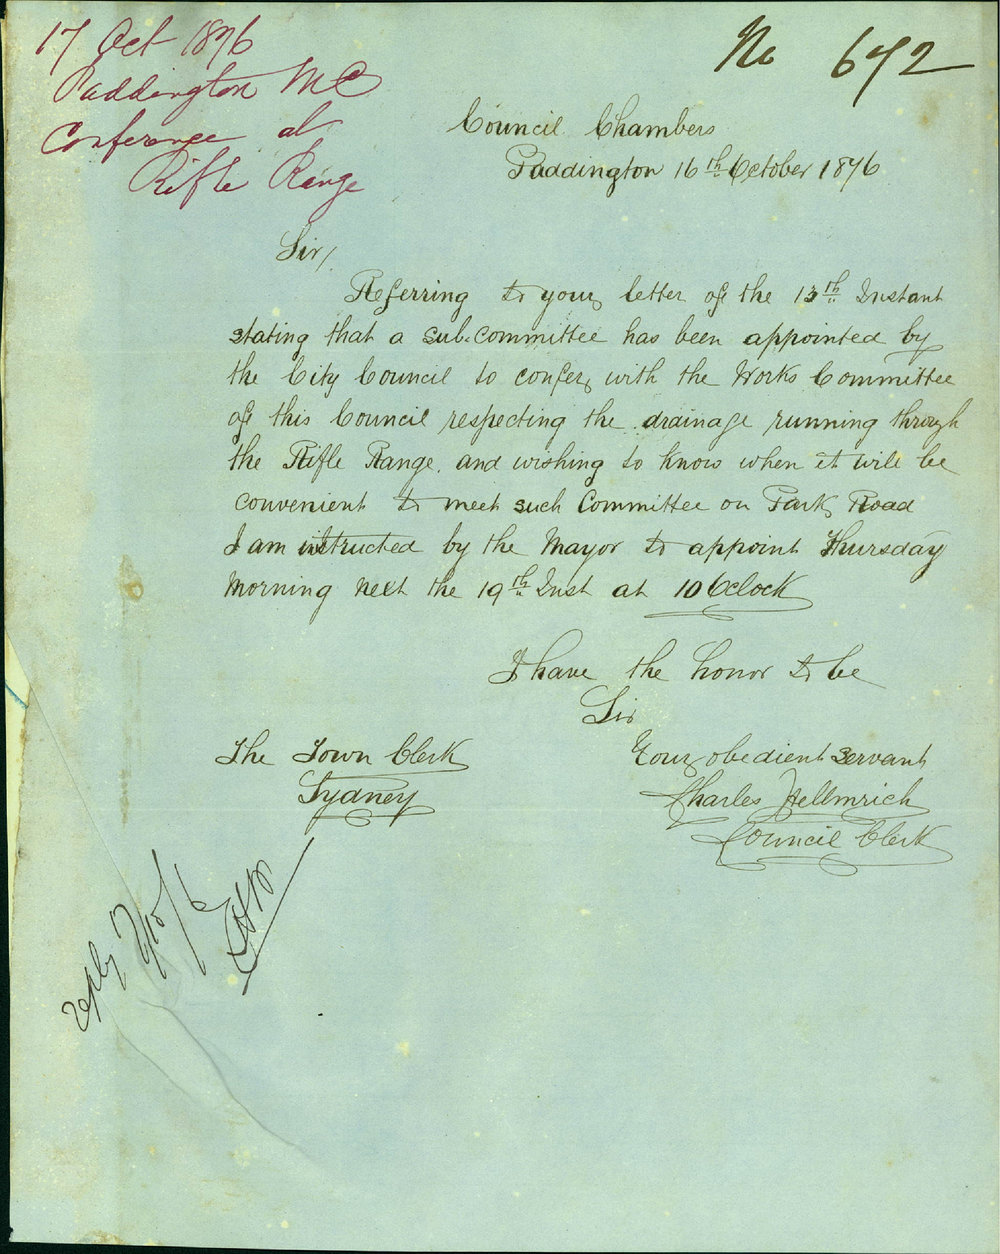 17 Oct 1876
Paddington MC
Conference at
Rifle Range
No 672
Council Chambers
Paddington 16th October 1876
Sir,
Referring to your letter of the 13th Instant
stating that a sub-committee has been appointed by
the City Council to confer with the Works Committee
of this Council respecting the drainage running through
the Rifle Range, and wishing to know when it will be
convenient to meet such Committee on Park Road
I am instructed by the Mayor to appoint Thursday
Morning next the 19th Inst at 10 O'Clock
I have the honor to be
Sir
Your obedient servant
Charles Hellmrich
Council Clerk
The Town Clerk
Sydney
reply